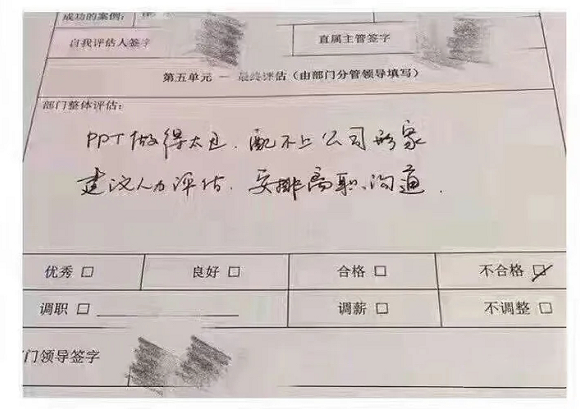 成功的案例:
自我评估人签字 直属主管签字
第五单元 — 最终评估（由部门分管领导填写）
部门整体评估:
PPT做得太丑，配不上公司形象
建议人力评估，安排离职沟通.
优秀 □ 良好 □ 合格 □ 不合格 ☑
调职 □ 调薪 □ 不调整 □
门领导签字